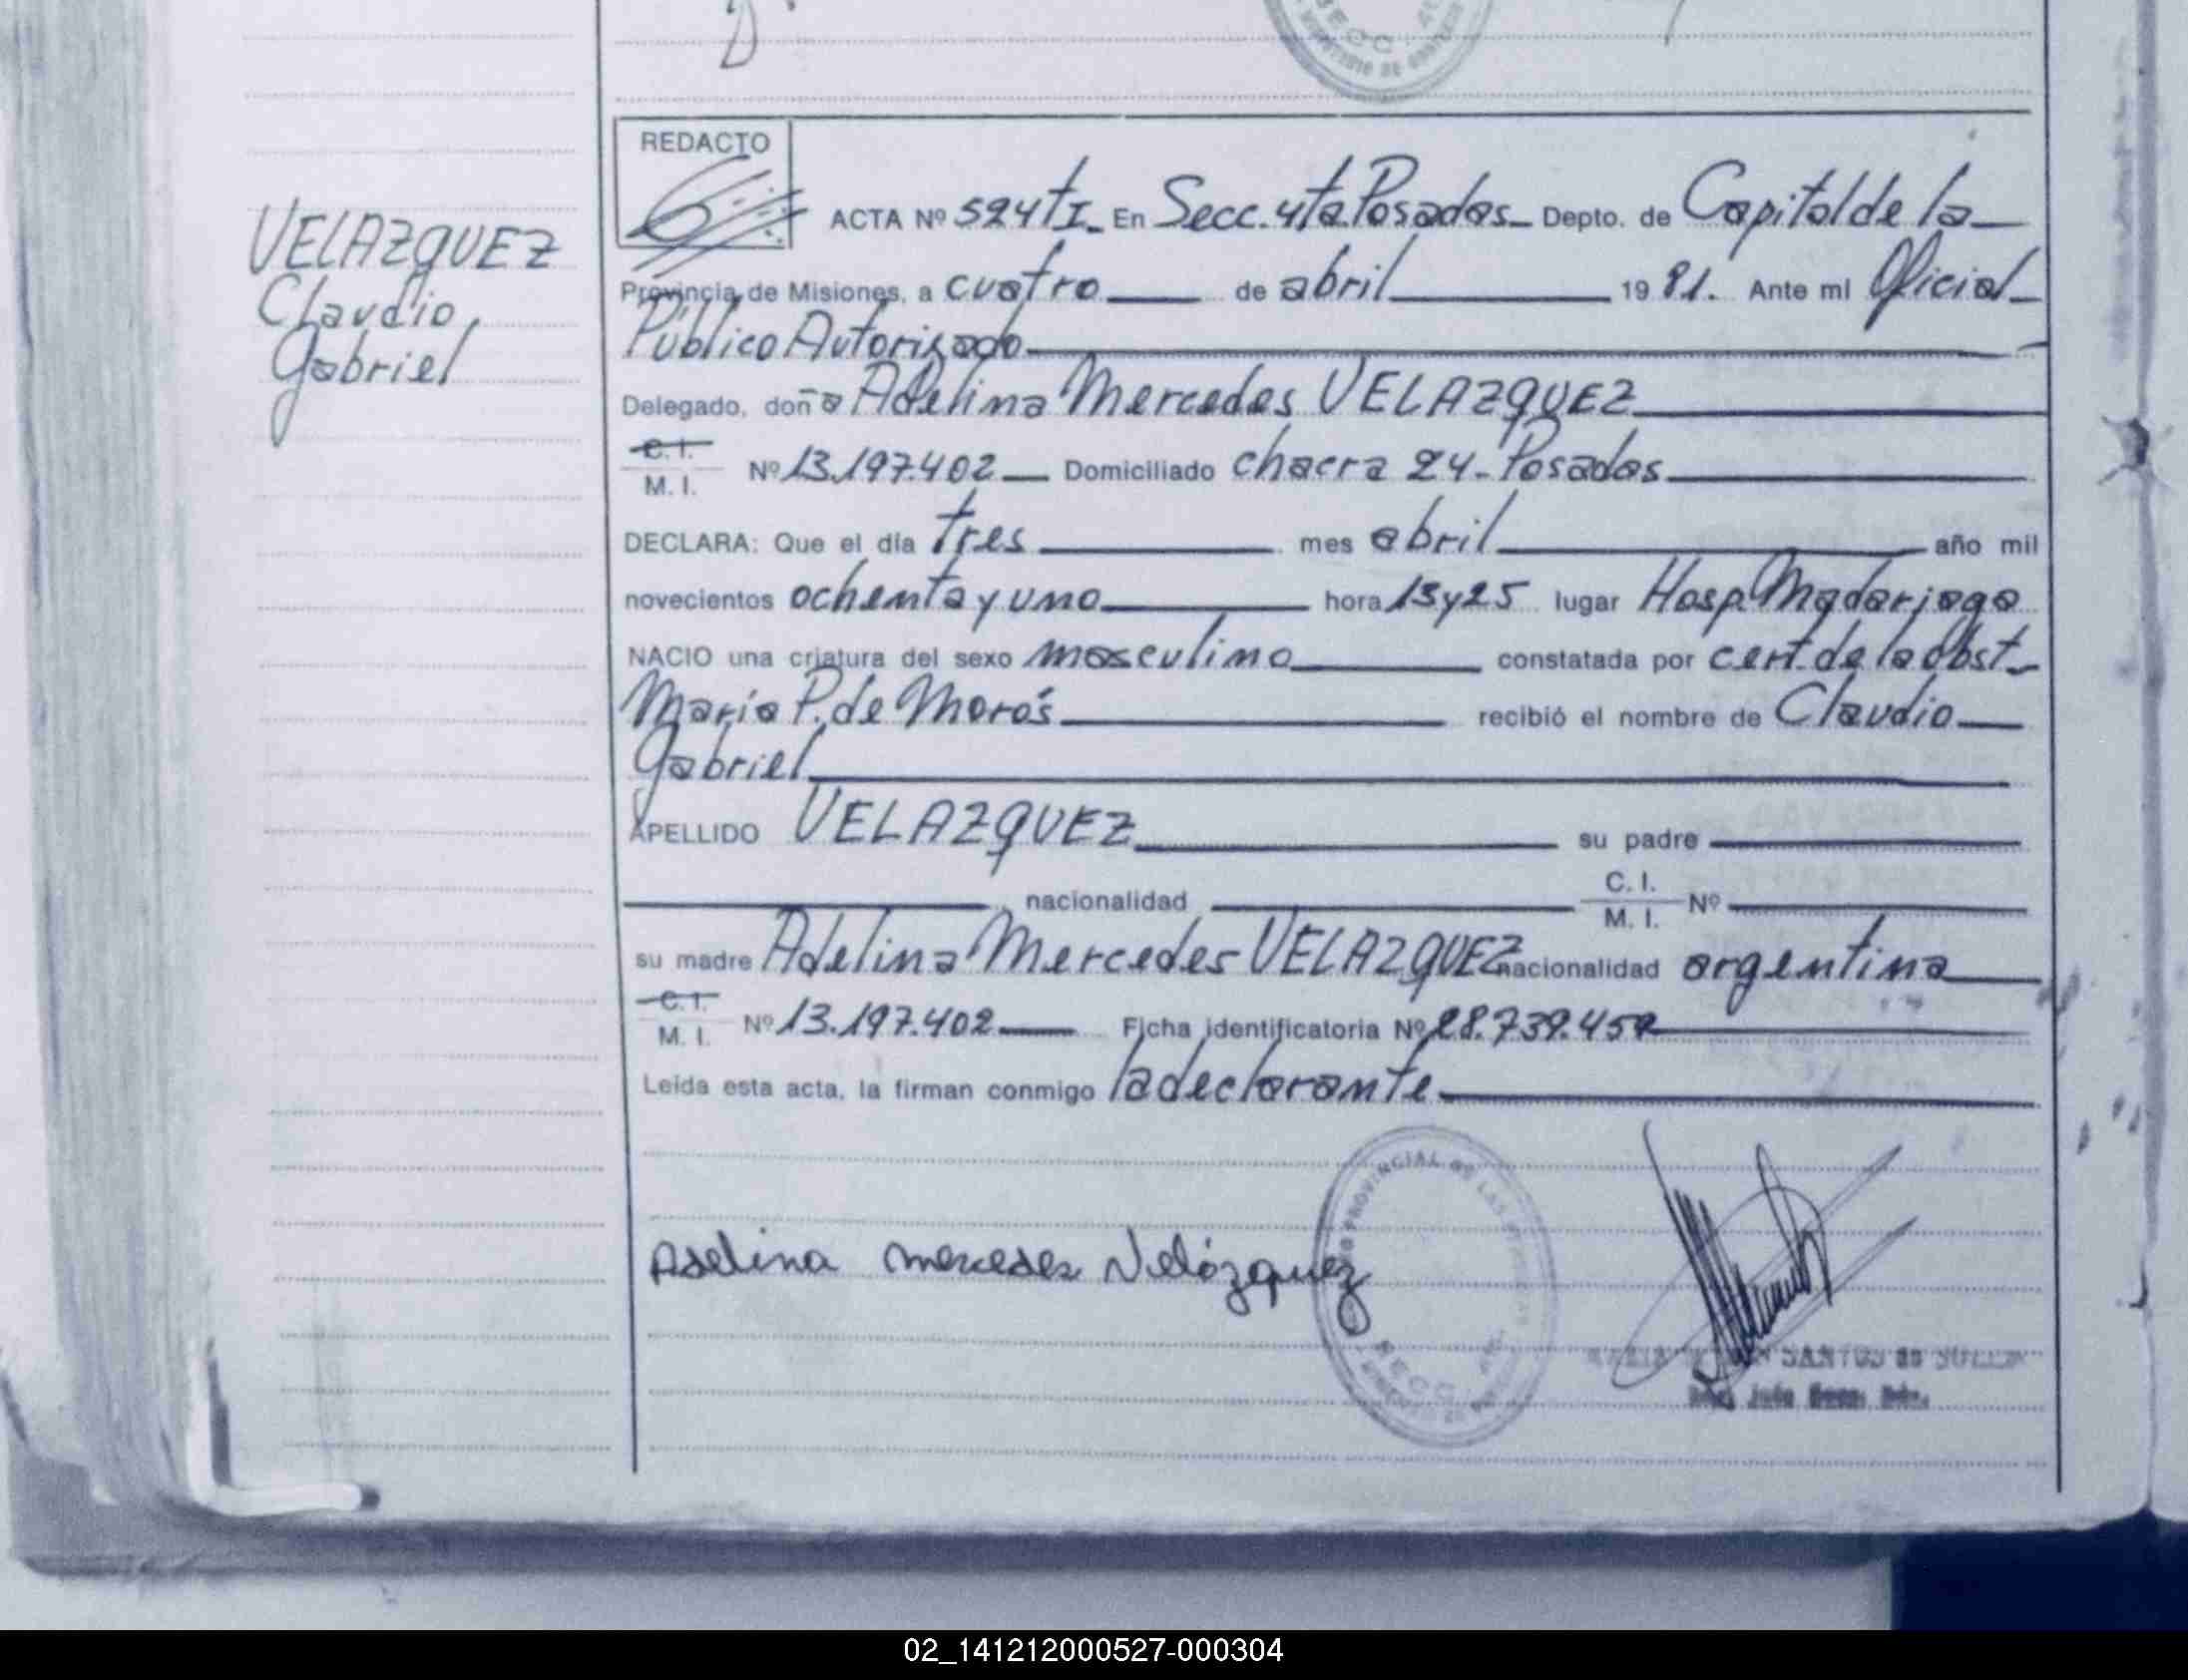 SECC. 4ta.
REDACTO
ACTA Nº 524 tI. En Secc. 4ta Posadas Depto. de Capital de la
VELAZQUEZ
Claudio
Gabriel
Provincia de Misiones, a cuatro de abril 19 81. Ante mi Oficial
Público Autorizado
Delegado, doña Adelina Mercedes VELAZQUEZ
C. I.
M. I. Nº 13.197.402 Domiciliado chacra 24 - Posadas
DECLARA: Que el día tres mes abril año mil
novecientos ochenta y uno hora 13y25 lugar Hosp. Madariaga
NACIO una criatura del sexo masculino constatada por cert. de la obst
María P. de Morós recibió el nombre de Claudio
Gabriel
APELLIDO VELAZQUEZ su padre
nacionalidad C. I. M. I. Nº
su madre Adelina Mercedes VELAZQUEZ nacionalidad argentina
C. I.
M. I. Nº 13.197.402 Ficha identificatoria Nº 28.739.45
Leída esta acta, la firman conmigo la declarante
PROVINCIAL DE LAS
Adelina mercedes Velázquez
SECC. 4ta.
SANTOS de
02_141212000527-000304